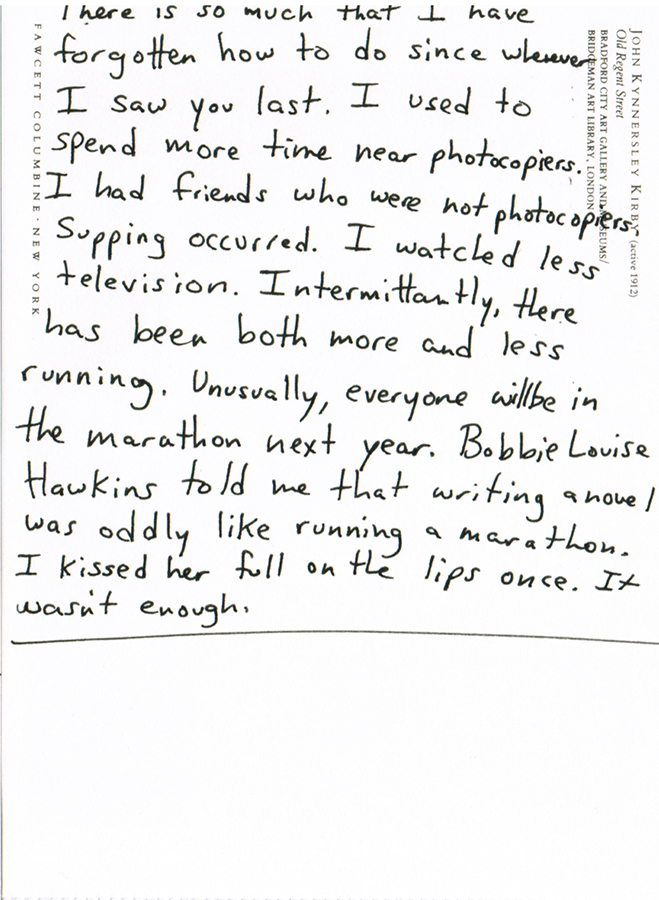 There is so much that I have
forgotten how to do since whenever
I saw you last. I used to
spend more time near photocopiers.
I had friends who were not photocopiers.
Supping occurred. I watched less
television. Intermittantly, there
has been both more and less
running. Unusually, everyone will be in
the marathon next year. Bobbie Louise
Hawkins told me that writing a novel
was oddly like running a marathon.
I kissed her full on the lips once. It
wasn't enough.
FAWCETT COLUMBINE · NEW YORK
JOHN KYNNERSLEY KIRBY (active 1912)
Old Regent Street
BRADFORD CITY ART GALLERY AND MUSEUMS/
BRIDGEMAN ART LIBRARY, LONDON